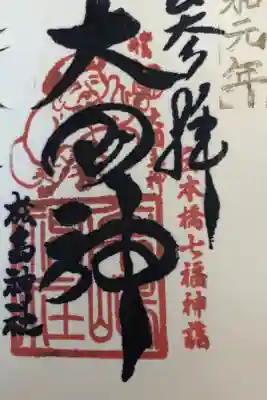 和元年
奉拝
日本橋七福神詣
大国神
松島神社